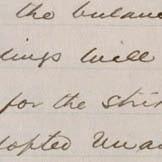 the balanc
dings will
for the stri
dopted unan